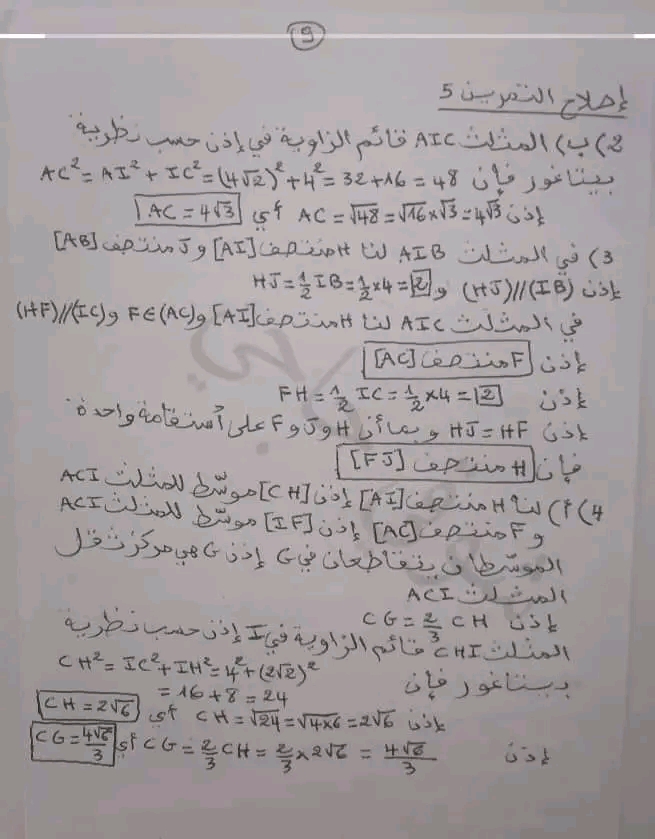 9
إصلاح التمرين 5
2) ب) المثلث AIC قائم الزاوية في إذن حسب نظرية
بيتاغور فإن AC² = AI² + IC² = (4√2)² + 4² = 32 + 16 = 48
إذن AC = √48 = √16×√3 = 4√3 أي AC = 4√3
3) في المثلث AIB لنا H منتصف [AI] و J منتصف [AB]
إذن (HJ)//(IB) و HJ = ½ IB = ½ × 4 = 2
في المثلث AIC لنا H منتصف [AI] و F∈(AC) و (HF)//(IC)
إذن F منتصف [AC]
إذن FH = ½ IC = ½ × 4 = 2
إذن HJ = HF و بما أن H و J و F على استقامة واحدة
فإن H منتصف [FJ]
4) أ) لنا H منتصف [AI] إذن [CH] موسّط للمثلث ACI
و F منتصف [AC] إذن [IF] موسّط للمثلث ACI
الموسّطان يتقاطعان في G إذن G هي مركز ثقل
المثلث ACI
إذن CG = 2/3 CH
المثلث CHI قائم الزاوية في I إذن حسب نظرية
بيتاغور فإن CH² = IC² + IH² = 4² + (2√2)²
= 16 + 8 = 24
إذن CH = √24 = √4×6 = 2√6 أي CH = 2√6
إذن CG = 2/3 CH = 2/3 × 2√6 = 4√6/3 أي CG = 4√6/3